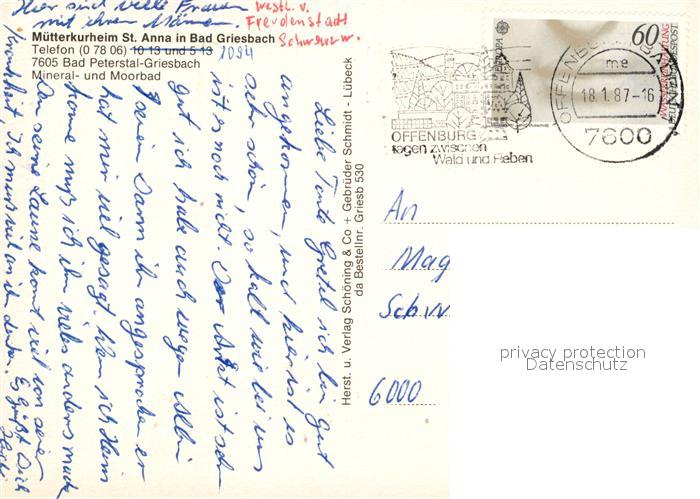 Hier sind viele Frauen
mit ihren Männern.
westl. v.
Freudenstadt
Schwarzw.
Mütterkurheim St. Anna in Bad Griesbach
Telefon (0 78 06) 10 13 und 5 13 1094
7605 Bad Peterstal-Griesbach
Mineral- und Moorbad
Liebe Tante Gretel ich bin gut
angekommen, und hier ist es
sehr schön, so kalt wie bei uns
ist es noch nicht. Der Arzt ist sehr
gut ich habe auch wegen Albin
seinen Darm ihn angesprochen er
hat mir viel gesagt. Wen ich Heim
komme muß ich ihm vieles anders machen
Den seine Launse komt viel von seiner
Krankheit. Ich muß viel an ihn denken. Es grüßt Dich
Herst. u. Verlag Schöning & Co + Gebrüder Schmidt - Lübeck
da Bestellnr. Griesb 530
OFFENBURG
tagen zwischen
Wald und Reben
EUROPA
60
DEUTSCHE BUNDESPOST
OFFENBURG
me
18.1.87-16
7600
An
Mag
Schw
6000
privacy protection
Datenschutz